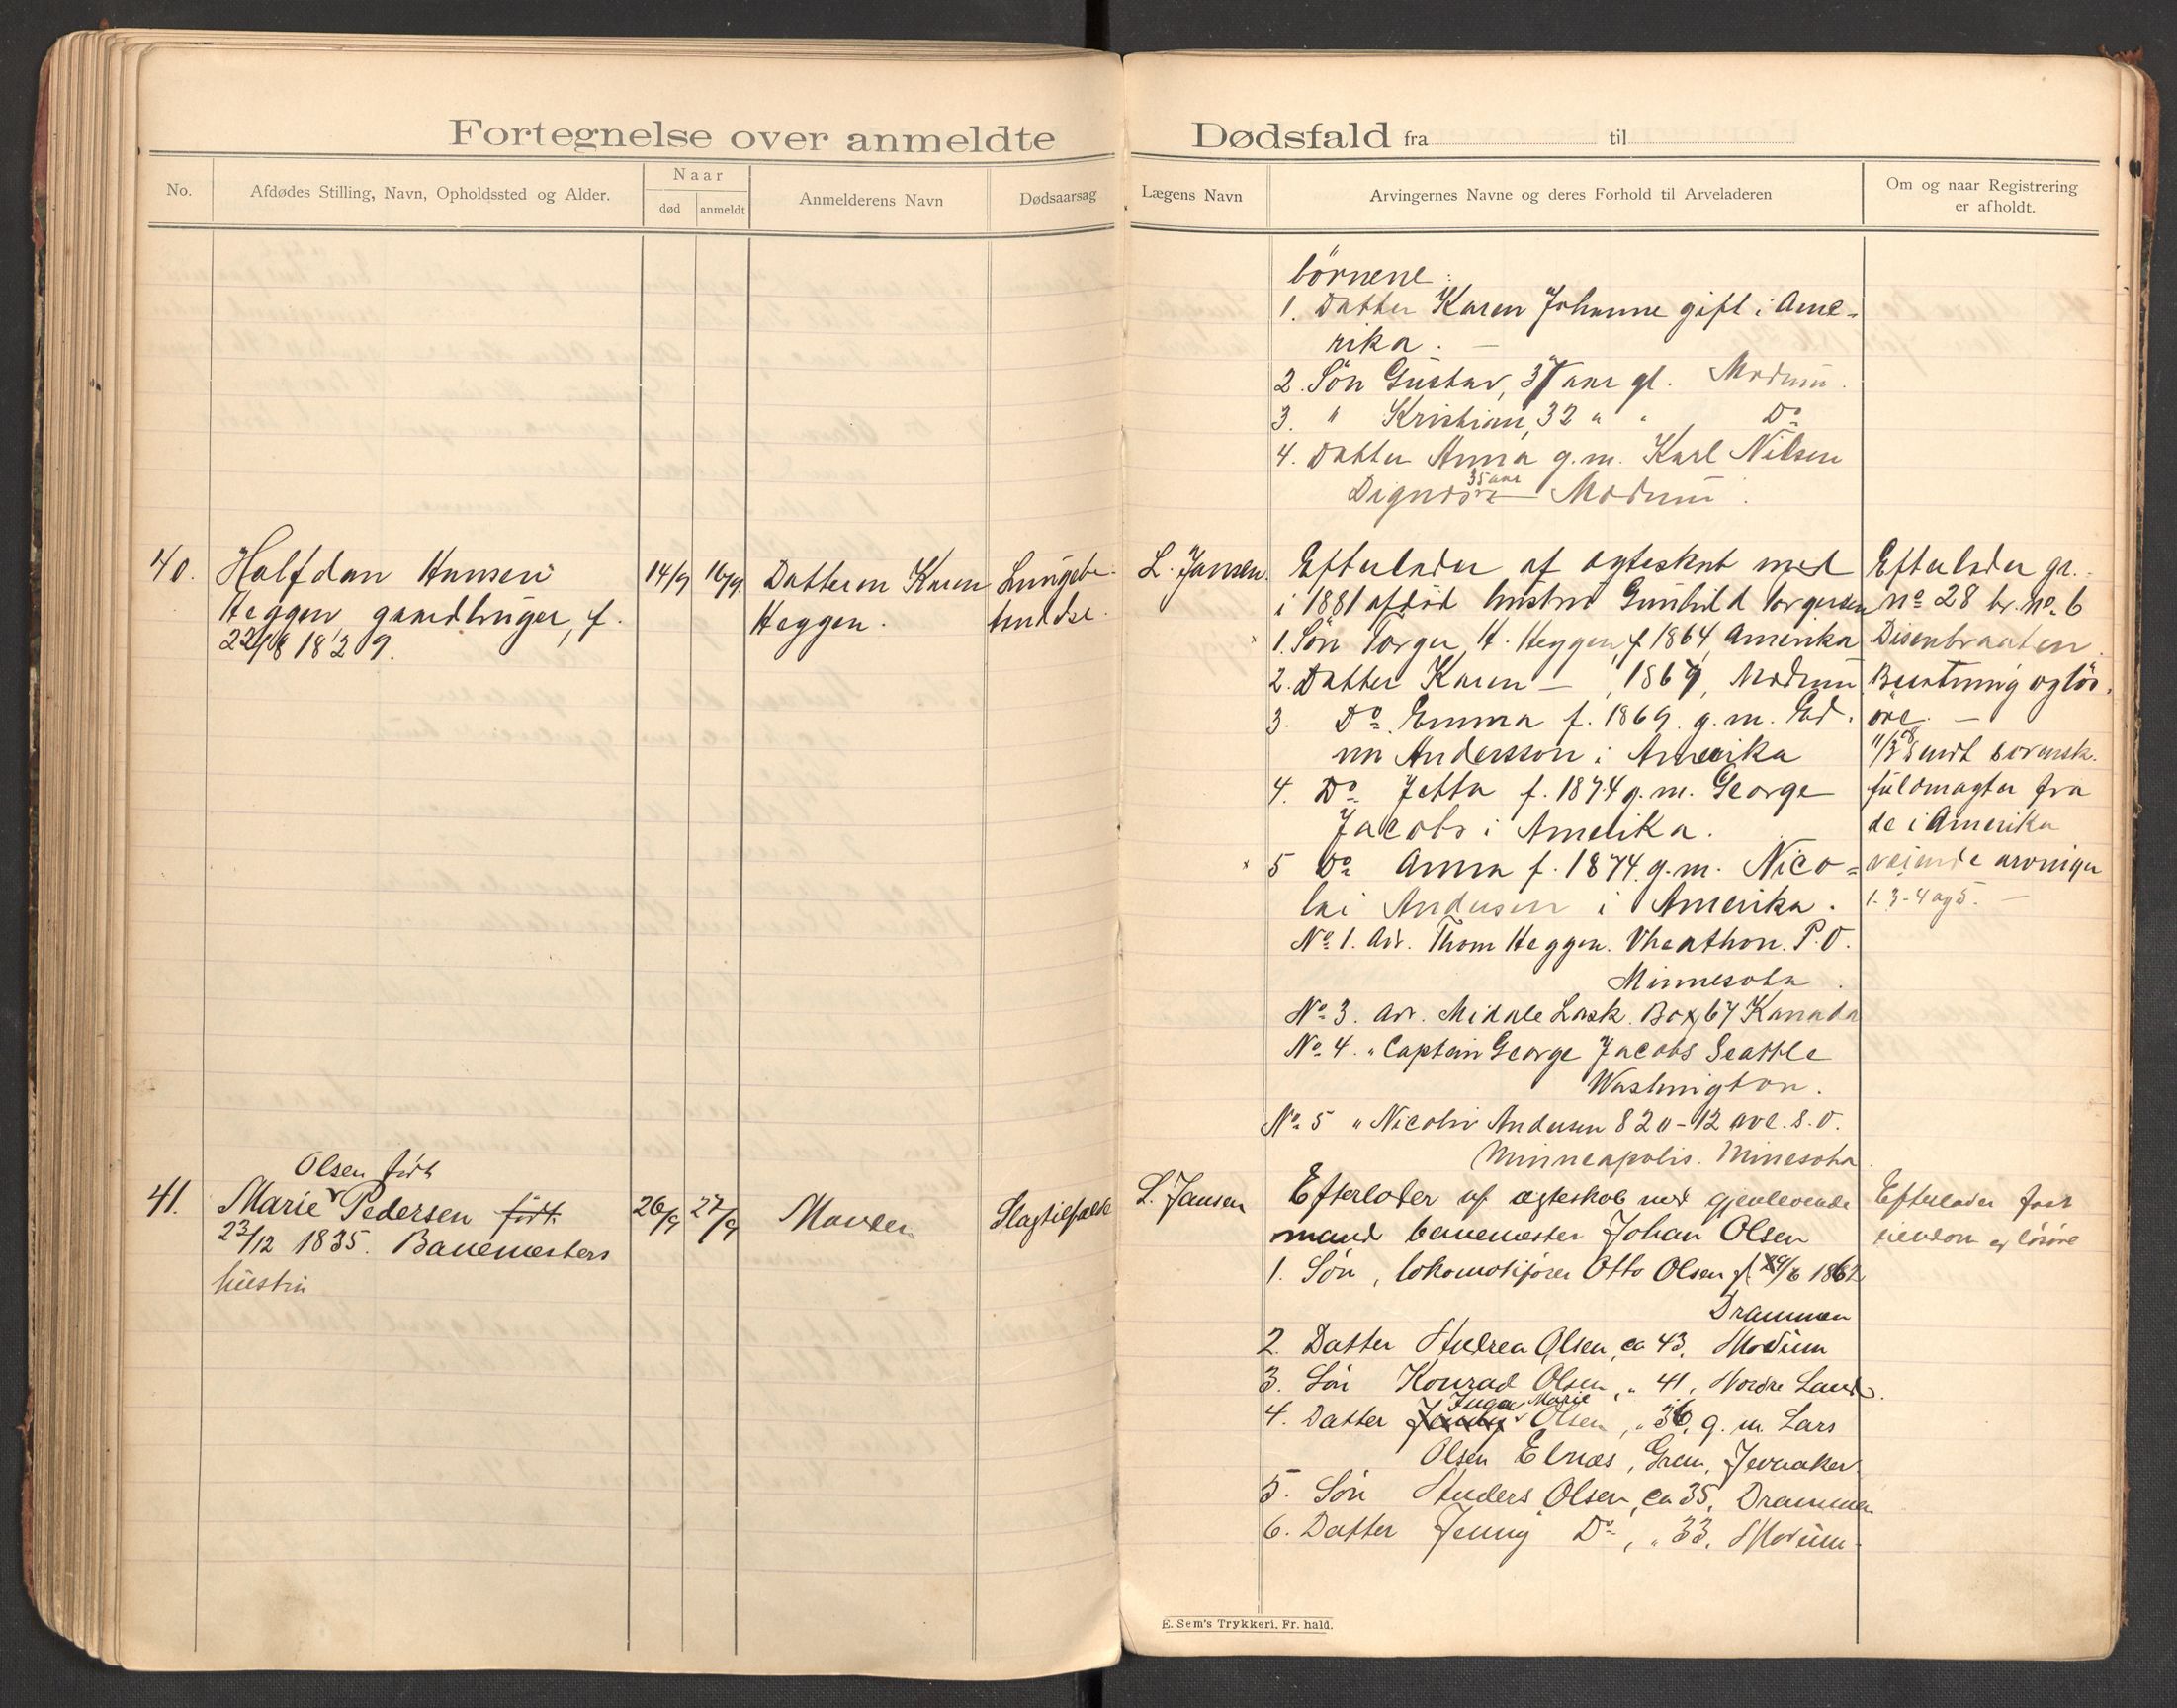 Fortegnelse over anmeldte
Dødsfald fra til
No.
Afdødes Stilling, Navn, Opholdssted og Alder.
Naar
død
anmeldt
Anmelderens Navn
Dødsaarsag
Lægens Navn
Arvingernes Navne og deres Forhold til Arveladeren
Om og naar Registrering
er afholdt.
börnene:
1. Datter Karen Johanne gift i Ame-
rika. —
2. Sön Gustav, 37 aar gl. Modum.
3. " Kristian, 32 " " Do
4. Datter Anna g.m. Karl Nilsen
35 aar
Modum.
40.
Halfdan Hansen
Heggen, gaardbruger, f.
22/8 1829.
14/9
16/9.
Datteren Karen
Heggen.
Lungebe-
tendelse.
L. Jansen.
Efterlader af ægteskab med
i 1881 afdöd hustru Gunhild Torgersen
1. Sön Torger H. Heggen, f 1864, Amerika
2. Datter Karen — , 1867, Modum
3. Do Emma f. 1869. g.m. Ed.
Andersson i Amerika
4. Do Jetta f. 1874 g.m. George
Jacobs i Amerika.
5 Do Anna f. 1874. g.m. Nico-
lai Andersen i Amerika.
No 1. Adr. Thom Heggen. Vheathon. P.O.
Minnesota.
No 3. Adr. Midale Sask. Box, 67 Kanada
No 4. " Captain George Jacobs Seattle
Washington.
No 5 " Nicolai Andersen 820-12 ave. S.O.
Minneapolis. Minesota.
Efterlader gr.
no 28 br. no 6
Disenbraaten.
Besetning og lös-
öre. —
11/3 08 sendt svensk.
fuldmagter fra
de i Amerika
værende arvinger
1. 3-4 og 5. —
41.
Olsen født
Marie Pedersen født
23/12 1835. Banemesters
hustru
26/9
27/9
Manden
Slagtilfælde
L. Jansen
Efterlader af ægteskab med gjenlevende
mand banemester Johan Olsen
1. Sön, lokomotivförer Otto Olsen f. 29/6 1862
Drammen
2. Datter Andrea Olsen, ca 43, Modum
3. Sön Konrad Olsen, " 41, Nordre Land.
Inga Marie
4. Datter Jenny Olsen, " 36, g. m. Lars
Olsen Elnæs, Gran, Jevnaker
5. Sön Anders Olsen, ca 35, Drammen
6. Datter Jenny Do, " 33, Modum.
Efterlader fast
eiendom og lösöre
E. Sem's Trykkeri, Fr. hald.